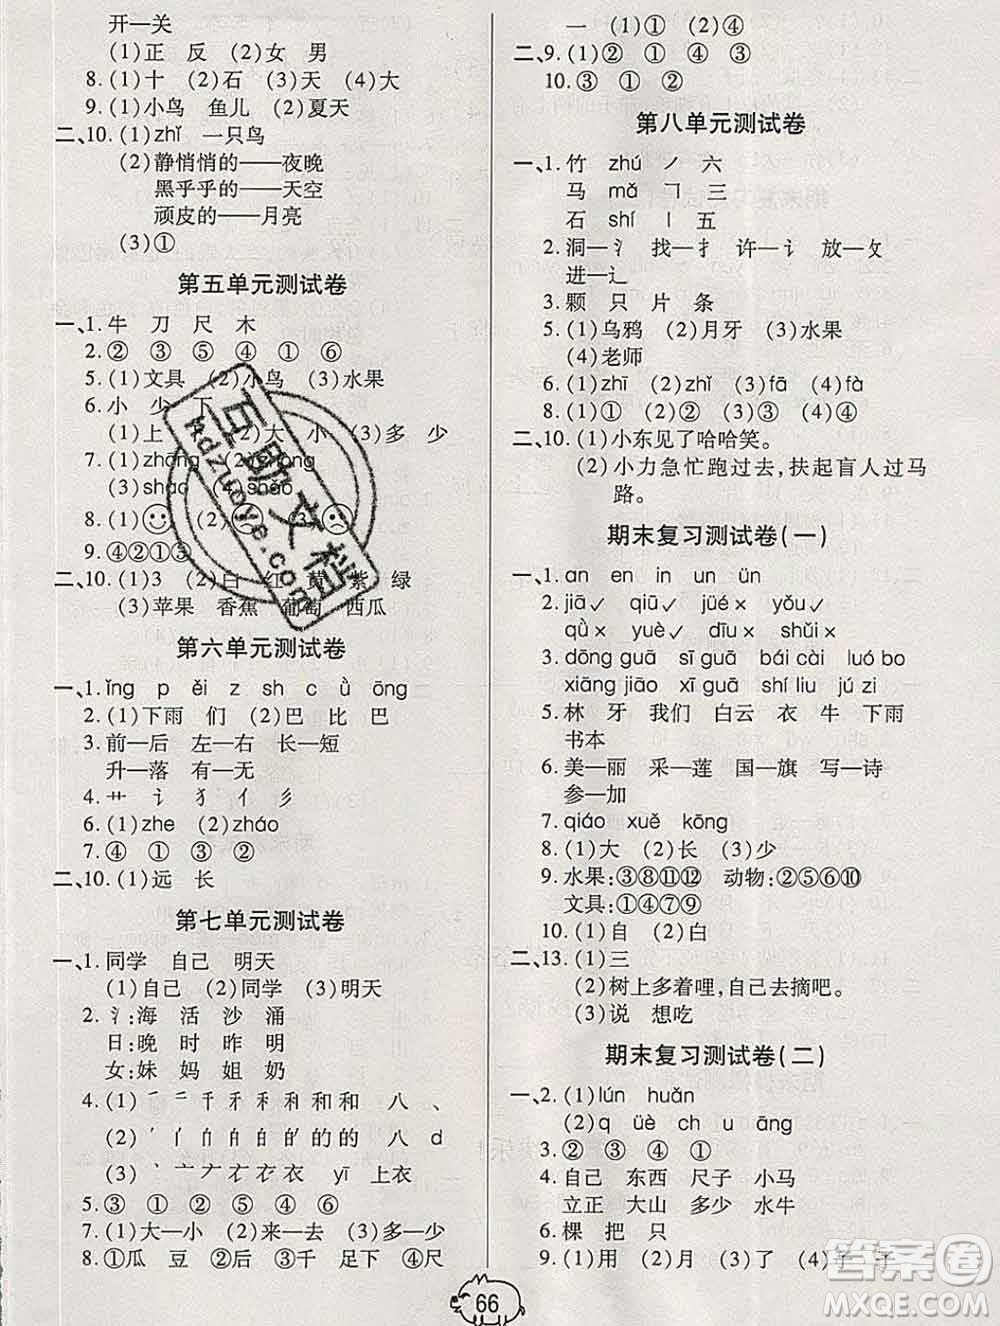 开—关
(1)正 反 (2)女 男
8. (1)十 (2)石 (3)天 (4)大
9. (1)小鸟 鱼儿 (2)夏天
二、10. (1)zhī 一只鸟
(2)静悄悄的——夜晚
黑乎乎的——天空
顽皮的——月亮
(3)①
第五单元测试卷
一、1. 牛 刀 尺 木
2. ② ③ ⑤ ④ ① ⑥
5. (1)文具 (2)小鸟 (3)水果
6. 小 少 下
(1)上 (2)大 小 (3)多 少
7. (1)zhāng
(3)shāo
8. (1) (2) (3)
9. ④②①③
二、10. (1)3 (2)白 红 黄 紫 绿
(3)苹果 香蕉 葡萄 西瓜
第六单元测试卷
一、1. ǐng p ěi z sh c ǜ ōng
2. (1)下雨 们 (2)巴 比 巴
3. 前—后 左—右 长—短
升—落 有—无
4. 艹 讠 犭 亻 彡
6. (1)zhe (2)zháo
7. ④ ① ③ ②
二、10. (1)远 长
第七单元测试卷
一、1. 同学 自己 明天
(1)自己 (2)同学 (3)明天
2. 氵:海 活 沙 涌
日:晚 时 昨 明
女:妹 妈 姐 奶
4. (1) 千 禾 和 和 八 、
(2) 的 的 八 d
(3) 衣 yī 上衣
5. ③ ① ② ⑤ ④ ⑥
7. (1)大—小 (2)来—去 (3)多—少
8. ①瓜 豆 ②后 ③千 足下 ④尺
一 (1)② (2)④
二、9. (1)② ① ④ ③
10. ③ ① ②
第八单元测试卷
一、1. 竹 zhú ノ 六
马 mǎ ㇆ 三
石 shí 丨 五
2. 洞—氵 找—扌 许—讠 放—攵
进—辶
3. 颗 只 片 条
5. (1)乌鸦 (2)月牙 (3)水果
(4)老师
6. (1)zhī (2)zhǐ (3)fā (4)fà
8. (1)① (2)② (3)② (4)①
二、10. (1)小东见了哈哈笑。
(2)小力急忙跑过去,扶起盲人过马
路。
期末复习测试卷(一)
一、1. an en in un ün
2. jiā✓ qiū✓ jüé× yǒu✓
qǜ× yuè✓ dīu× shǔi×
3. dōng guā sī guā bái cài luó bo
xiāng jiāo xī guā shí liu jú zi
5. 林 牙 我们 白云 衣 牛 下雨
书本
6. 美—丽 采—莲 国—旗 写—诗
参—加
7. qiáo xuě kōng
8. (1)大 (2)长 (3)少
9. 水果:③⑧⑪⑫ 动物:②⑤⑥⑩
文具:①④⑦⑨
10. (1)自 (2)白
二、13. (1)三
(2)树上多着哩,自己去摘吧。
(3)说 想吃
期末复习测试卷(二)
一、2. (1)lún huǎn
(2)q üè ch u āng
3. ② ③ ④ ①
4. 自己 东西 尺子 小马
立正 大山 多少 水牛
6. 棵 把 只
9. (1)用 (2)月 (3)了 (4)子 子
66
互助文档
hdzuoye.com
答案圈
MXQE.COM